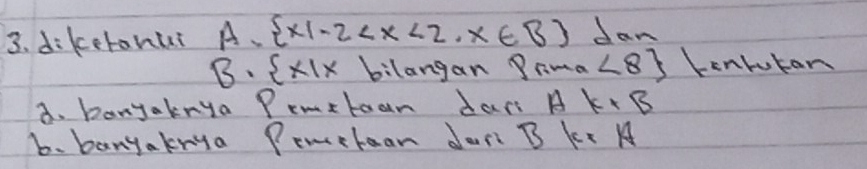 3. diketahui A = {x|-2<x<2, x ∈ B} dan
B = {x|x bilangan Prima <8} tentukan
a. banyaknya Pemetaan dari A ke B
b. banyaknya Pemetaan dari B ke A